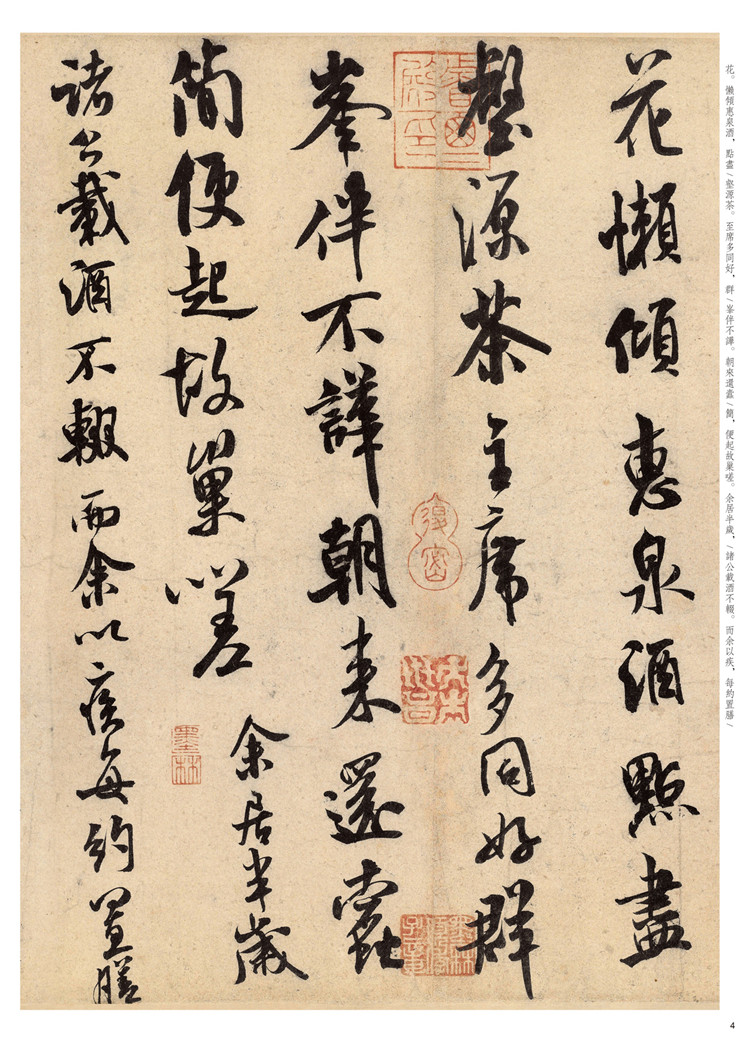 花。懶傾惠泉酒,點盡/壑源茶。至席多同好,群/峯伴不譁。朝來還蠹/簡,便起故巢嗟。余居半歲,/諸公載酒不輟。而余以疾,每約置膳/
花懶傾惠泉酒點盡
壑源茶主席多同好群
峯伴不譁朝來還蠹
簡便起故巢嗟
余居半歲
諸公載酒不輟而余以疾每約置膳
墨林
4